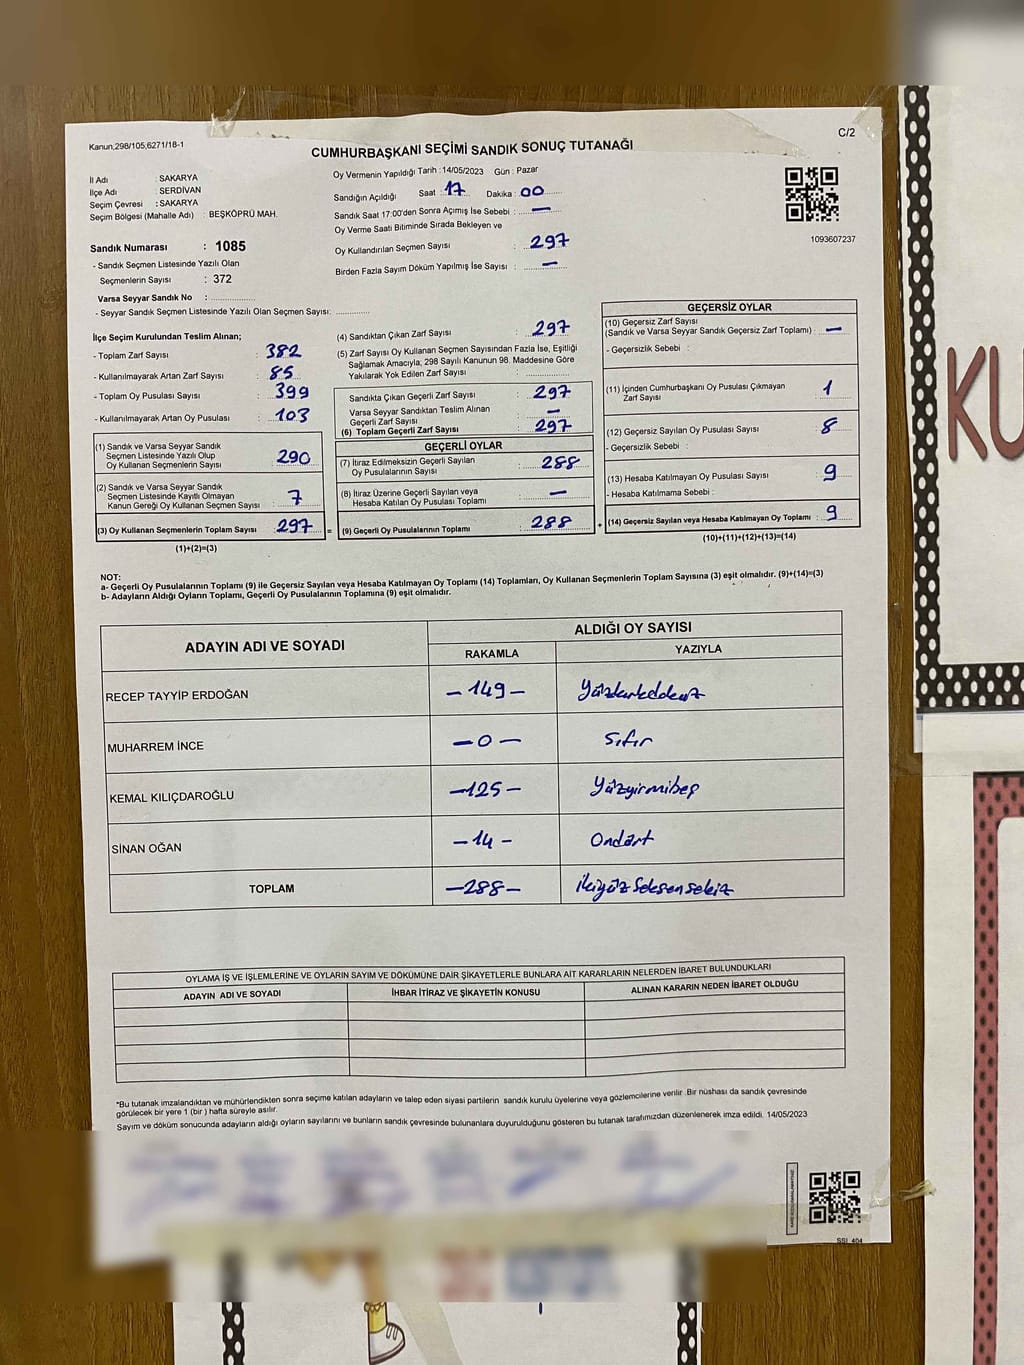 Kanun,298/105,6271/18-1
C/2
CUMHURBAŞKANI SEÇİMİ SANDIK SONUÇ TUTANAĞI
İl Adı : SAKARYA
İlçe Adı : SERDİVAN
Seçim Çevresi : SAKARYA
Seçim Bölgesi (Mahalle Adı) : BEŞKÖPRÜ MAH.
Sandık Numarası : 1085
- Sandık Seçmen Listesinde Yazılı Olan
Seçmenlerin Sayısı : 372
Varsa Seyyar Sandık No :
- Seyyar Sandık Seçmen Listesinde Yazılı Olan Seçmen Sayısı:
Oy Vermenin Yapıldığı Tarih : 14/05/2023 Gün : Pazar
Sandığın Açıldığı Saat 17 Dakika : 00
Sandık Saat 17:00'den Sonra Açımış İse Sebebi : —
Oy Verme Saati Bitiminde Sırada Bekleyen ve
Oy Kullandırılan Seçmen Sayısı : 297
Birden Fazla Sayım Döküm Yapılmış İse Sayısı : —
1093607237
İlçe Seçim Kurulundan Teslim Alınan;
- Toplam Zarf Sayısı : 382
- Kullanılmayarak Artan Zarf Sayısı : 85
- Toplam Oy Pusulası Sayısı : 399
- Kullanılmayarak Artan Oy Pusulası : 103
(1) Sandık ve Varsa Seyyar Sandık
Seçmen Listesinde Yazılı Olup
Oy Kullanan Seçmenlerin Sayısı : 290
(2) Sandık ve Varsa Seyyar Sandık
Seçmen Listesinde Kayıtlı Olmayan
Kanun Gereği Oy Kullanan Seçmen Sayısı : 7
(3) Oy Kullanan Seçmenlerin Toplam Sayısı : 297 =
(1)+(2)=(3)
(4) Sandıktan Çıkan Zarf Sayısı : 297
(5) Zarf Sayısı Oy Kullanan Seçmen Sayısından Fazla İse, Eşitliği
Sağlamak Amacıyla; 298 Sayılı Kanunun 98. Maddesine Göre
Yakılarak Yok Edilen Zarf Sayısı :
Sandıkta Çıkan Geçerli Zarf Sayısı : 297
Varsa Seyyar Sandıktan Teslim Alınan
Geçerli Zarf Sayısı : —
(6) Toplam Geçerli Zarf Sayısı : 297
GEÇERLİ OYLAR
(7) İtiraz Edilmeksizin Geçerli Sayılan
Oy Pusulalarının Sayısı : 288
(8) İtiraz Üzerine Geçerli Sayılan veya
Hesaba Katılan Oy Pusulası Toplamı : —
(9) Geçerli Oy Pusulalarının Toplamı : 288 +
GEÇERSİZ OYLAR
(10) Geçersiz Zarf Sayısı
(Sandık ve Varsa Seyyar Sandık Geçersiz Zarf Toplamı) : —
- Geçersizlik Sebebi :
(11) İçinden Cumhurbaşkanı Oy Pusulası Çıkmayan
Zarf Sayısı : 1
(12) Geçersiz Sayılan Oy Pusulası Sayısı : 8
- Geçersizlik Sebebi :
(13) Hesaba Katılmayan Oy Pusulası Sayısı : 9
- Hesaba Katılmama Sebebi :
(14) Geçersiz Sayılan veya Hesaba Katılmayan Oy Toplamı : 9
(10)+(11)+(12)+(13)=(14)
NOT:
a- Geçerli Oy Pusulalarının Toplamı (9) ile Geçersiz Sayılan veya Hesaba Katılmayan Oy Toplamı (14) Toplamları, Oy Kullanan Seçmenlerin Toplam Sayısına (3) eşit olmalıdır. (9)+(14)=(3)
b- Adayların Aldığı Oyların Toplamı, Geçerli Oy Pusulalarının Toplamına (9) eşit olmalıdır.
ADAYIN ADI VE SOYADI
ALDIĞI OY SAYISI
RAKAMLA YAZIYLA
RECEP TAYYİP ERDOĞAN -149-
MUHARREM İNCE -0- Sıfır
KEMAL KILIÇDAROĞLU -125- Yüzyirmibeş
SİNAN OĞAN -14- Ondört
TOPLAM -288- İkiyüz Seksen sekiz
OYLAMA İŞ VE İŞLEMLERİNE VE OYLARIN SAYIM VE DÖKÜMÜNE DAİR ŞİKAYETLERLE BUNLARA AİT KARARLARIN NELERDEN İBARET BULUNDUKLARI
ADAYIN ADI VE SOYADI İHBAR İTİRAZ VE ŞİKAYETİN KONUSU ALINAN KARARIN NEDEN İBARET OLDUĞU
*Bu tutanak imzalandıktan ve mühürlendikten sonra seçime katılan adayların ve talep eden siyasi partilerin sandık kurulu üyelerine veya gözlemcilerine verilir .Bir nüshası da sandık çevresinde
görülecek bir yere 1 (bir ) hafta süreyle asılır.
Sayım ve döküm sonucunda adayların aldığı oyların sayılarını ve bunların sandık çevresinde bulunanlara duyurulduğunu gösteren bu tutanak tarafımızdan düzenlenerek imza edildi. 14/05/2023
SSI_404
KU